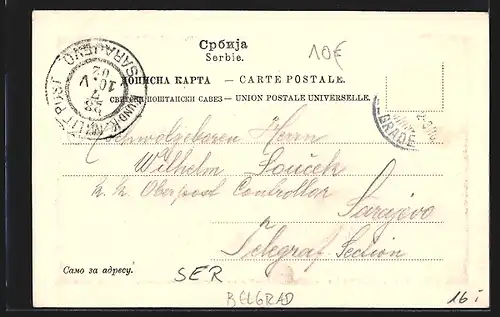 Србија
Serbie.
10€
ДОПИСНА КАРТА — CARTE POSTALE.
СВЕТСКИ ПОШТАНСКИ САВЕЗ — UNION POSTALE UNIVERSELLE.
SARAJEVO
10 V
02
UND K. MILIT. POST
GRADE
Hochwolgeboren Herrn
Wilhelm Souček
k. k. Oberpost Controllor
Sarajevo
Telegraf Section
Само за адресу.
SER
BELGRAD
16